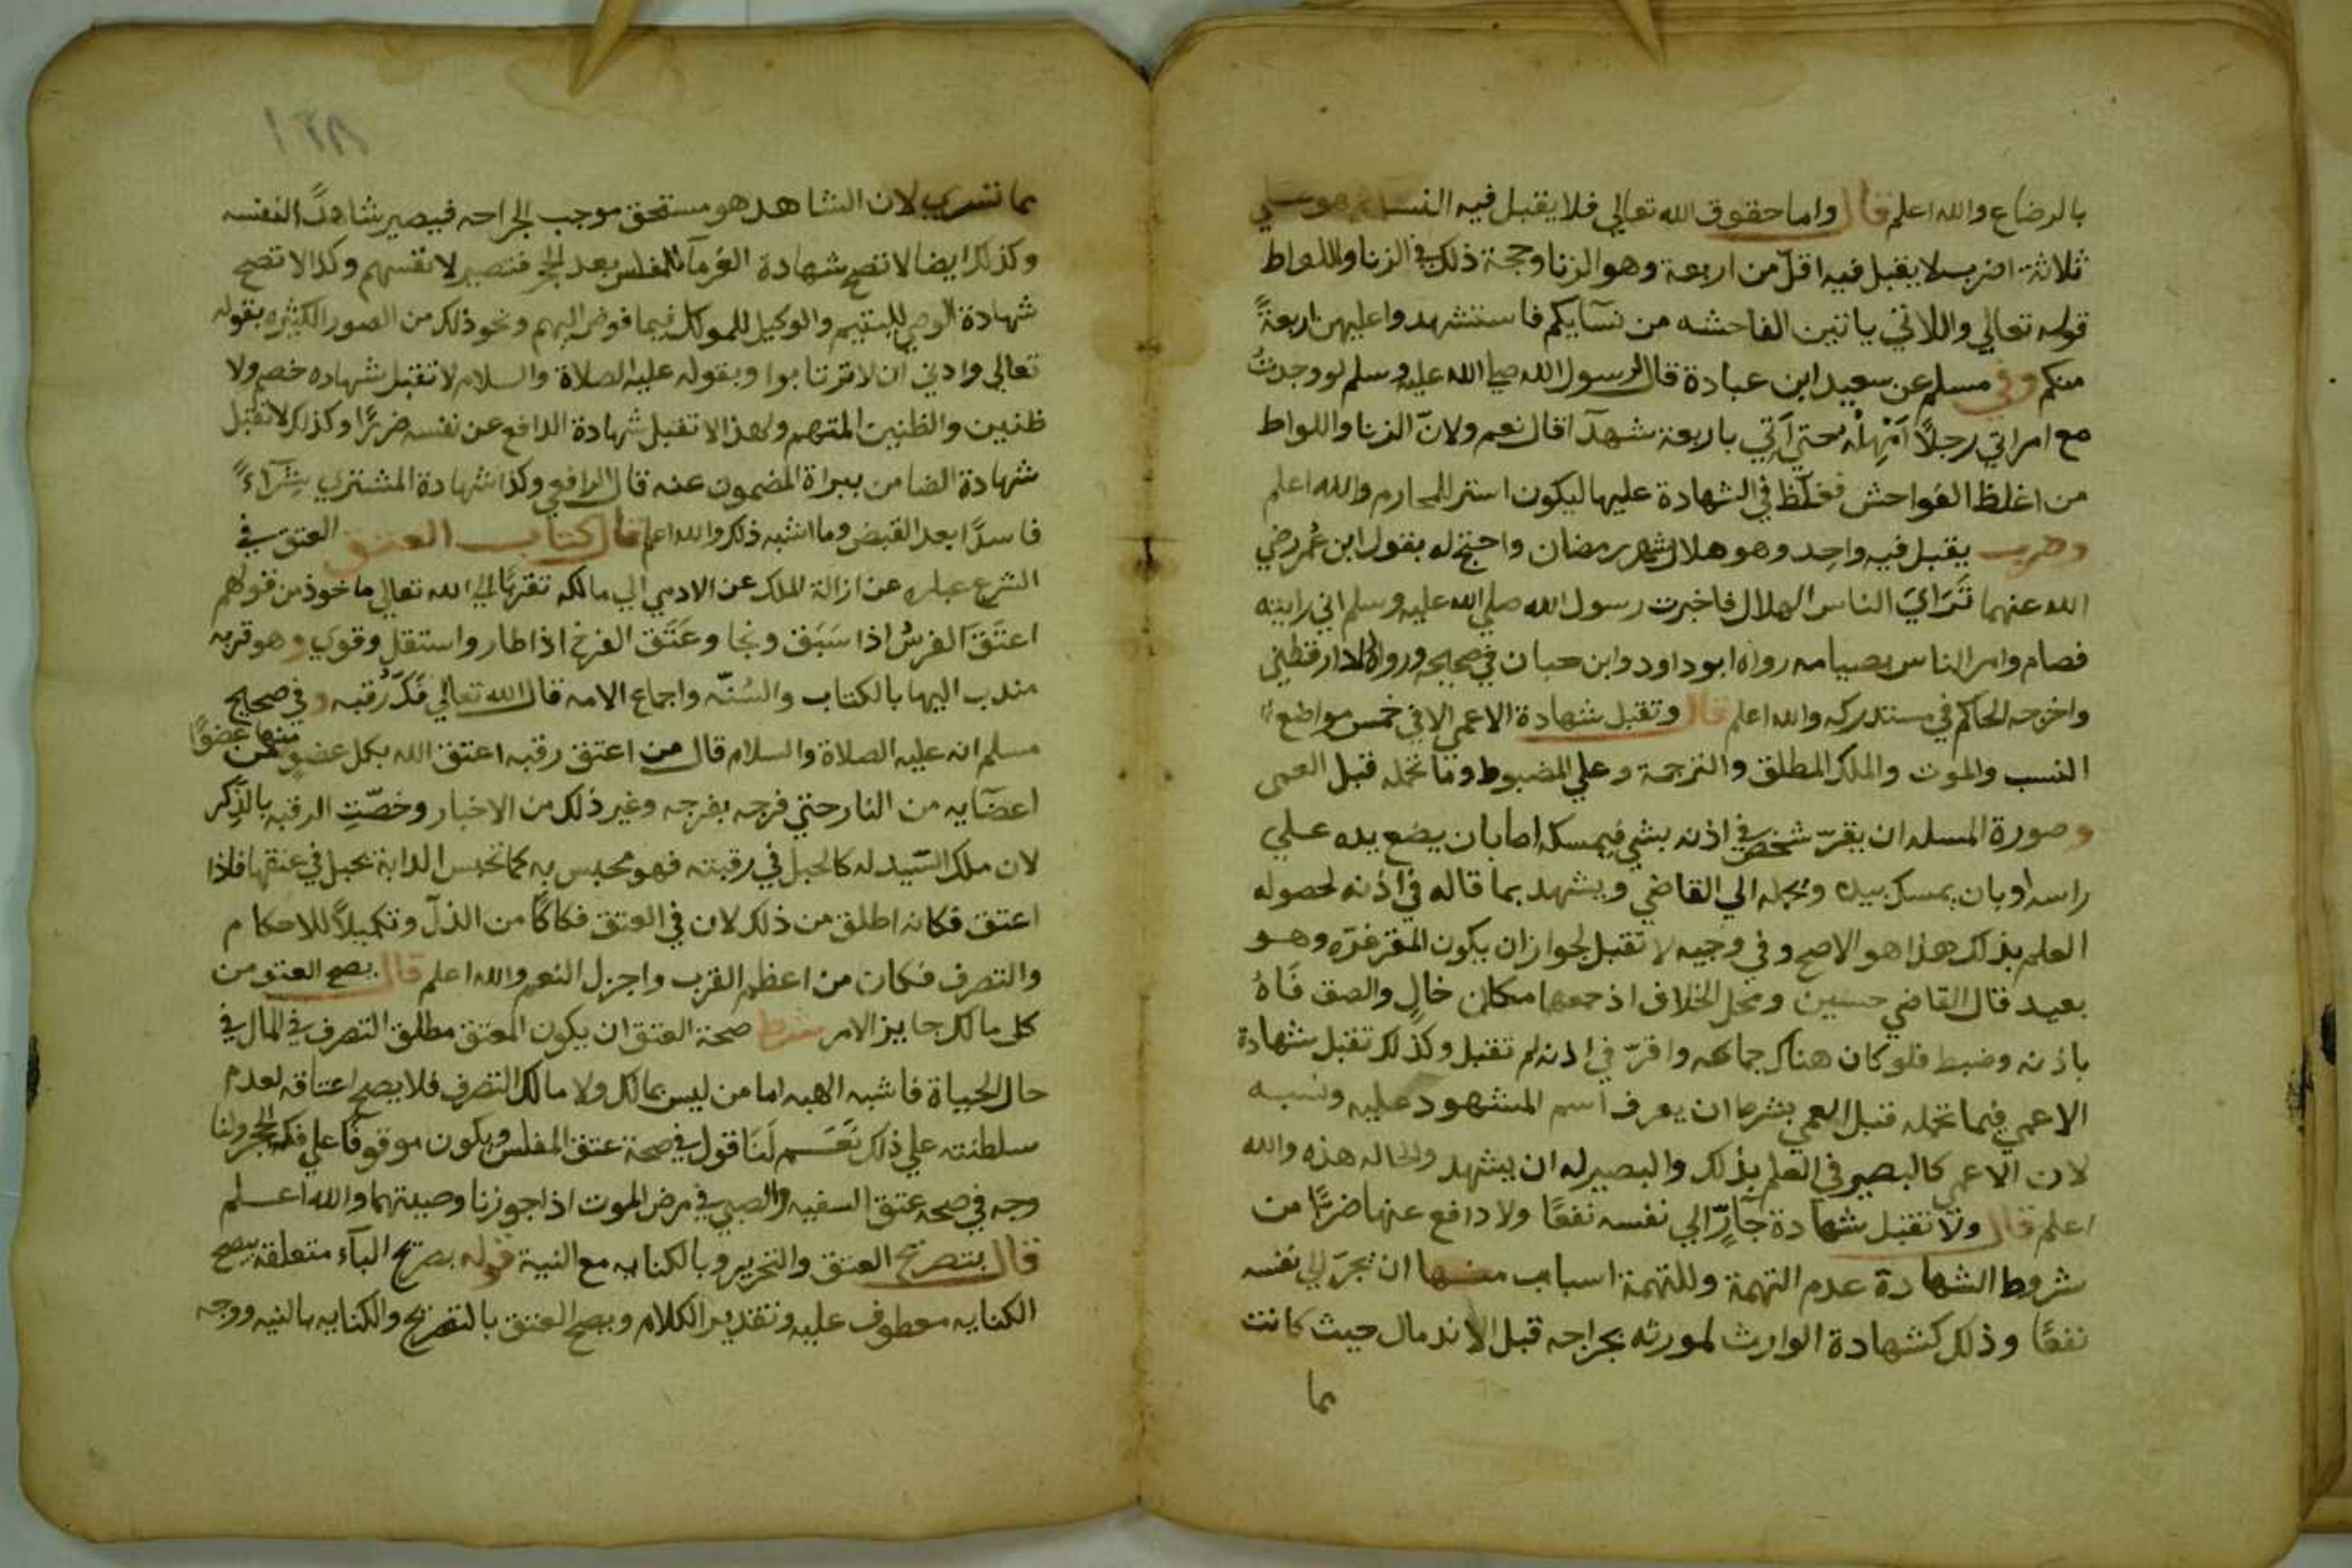 بالرضاع والله اعلم قال واما حقوق الله تعالي فلا يقبل فيه النسا وهو علي
ثلاثة اضرب لا يقبل فيه اقل من اربعة وهو الزنا وحجة ذلك في الزنا واللواط
قوله تعالي واللاتي ياتين الفاحشه من نسآيكم فاستشهدوا عليهن اربعةً
منكم وفي مسلم عن سعيد ابن عبادة قال لرسول الله صلي الله عليه وسلم لو وجدتُ
مع امراتي رجلاً اَمْهِلْه حتي آتي باربعة شهدآ قال نعم ولانّ الزنا واللواط
من اغلظ الفواحش فغلّظ في الشهادة عليها ليكون استر للمحارم والله اعلم
وضرب يقبل فيه واحِد وهو هلال شهر رمضان واحتج له بقول ابن عُمر رضي
الله عنهما تَرَايَ الناس الهلال فاخبرت رسول الله صلي الله عليه وسلم اني رايته
فصام وامر الناس بصيامه رواه ابو داود وابن حبان في صحيحه ورواه الدارقطني
واخرجه الحاكم في مستدركه والله اعلم قال وتقبل شهادة الاعمي الا في خمس مواضع
النسب والموت والملك المطلق والترجمة وعلي المضبوط وما تحمله قبل العمي
وصورة المسله ان يقرّ شخص في اذنه بشي فيمسكه اما بان يضع يده علي
راسه او بان يمسك بيده ويحمله الي القاضي ويشهد بما قاله في اذنه لحصوله
العلم بذلك هذا هو الاصح وفي وجيه لا تقبل لجواز ان يكون المقر غيره وهو
بعيد قال القاضي حسين ومحل الخلاف اذ جمعها مكان خالٍ والصق فَاهُ
باذنه وضبط فلو كان هناك جماعه واقرّ في اذنه لم تقبل وكذلك تقبل شهادة
الاعمي فيما تحمله قبل العمي بشرط ان يعرف اسم المشهود عليه ونسبه
لان الاعمي كالبصير في العلم بذلك والبصير له ان يشهد والحاله هذه والله
اعلم قال ولا تقبل شهادة جارٍّ الي نفسه نفعًا ولا دافع عنها ضررًا من
شروط الشهادة عدم التهمة وللتهمة اسباب منها ان يجرّ الي نفسه
نفعًا وذلك كشهادة الوارث لمورثه بجراحه قبل الاندمال حيث كانت
مما
١٣٨
مما تسري لان الشاهد هو مستحق موجب الجراحه فيصير شاهدًا لنفسه
وكذلك ايضا لا تصح شهادة الغرمآ للمفلس بعد الحجر فتصير لانفسهم وكذا لا تصح
شهادة الوصي لليتيم والوكيل للموكل فيما فوض اليهم ونحو ذلك من الصور الكثيره بقوله
تعالي وادني ان لا ترتابوا وبقوله عليه الصلاة والسلام لا تقبل شهاده خصم ولا
ظنين والظنين المتهم ولهذا لا تقبل شهادة الدافع عن نفسه ضررًا وكذلك لا تقبل
شهادة الضامن ببراة المضمون عنه قال الرافعي وكذا شهادة المشتري شِرَآءً
فاسدًا بعد القبض وما اشبه ذلك والله اعلم قال كتاب العتق العتق في
الشرع عباره عن ازالة الملك عن الادمي لا الي مالكه تقربًا الي الله تعالي ماخوذ من قولهم
اعتَقَ الفرسُ اذا سَبَق ونجا وعَتَق الفرخ اذا طار واستقل وقوي وهو قربه
مندب اليها بالكتاب والسُنّه واجماع الامه قال الله تعالي فَكّ رُقبه وفي صحيح
مسلم انه عليه الصلاة والسلام قال من اعتق رقبه اعتق الله بكل عضوٍ منها عضوًا من
اعضآيه من النار حتي فرجه بفرجه وغير ذلك من الاخبار وخصّتِ الرقبه بالذِكر
لان ملك السّيد له كالحبل في رقبته فهو محبس به كما تحبس الدابة بحبل في عنقها فاذا
اعتق فكانه اطلق من ذلك لان في العتق فكاكًا من الذلّ وتكميلاً للاحكام
والتصرف فكان من اعظم القرب واجزل النعم والله اعلم قال يصح العتق من
كل مالك جايز الامر شرط صحة العتق ان يكون المعتق مطلق التصرف في المال في
حال الحياة فاشبه الهبه اما من ليس بمالك ولا مالك التصرف فلا يصح اعتاقه لعدم
سلطنته علي ذلك نَعَم لَنَا قول في صحة عتق المفلس ويكون موقوفًا علي فك الحجر ولنا
وجه في صحه عتق السفيه والصبي في مرض الموت اذا جوزنا وصيتهما والله اعلم
قال بتصريح العتق والتحرير وبالكنايه مع النية قوله بصريح البآء متعلقه بيصح
الكنايه معطوف عليه وتقدير الكلام ويصح العتق بالتصريح والكنايه بالنيه ووجه